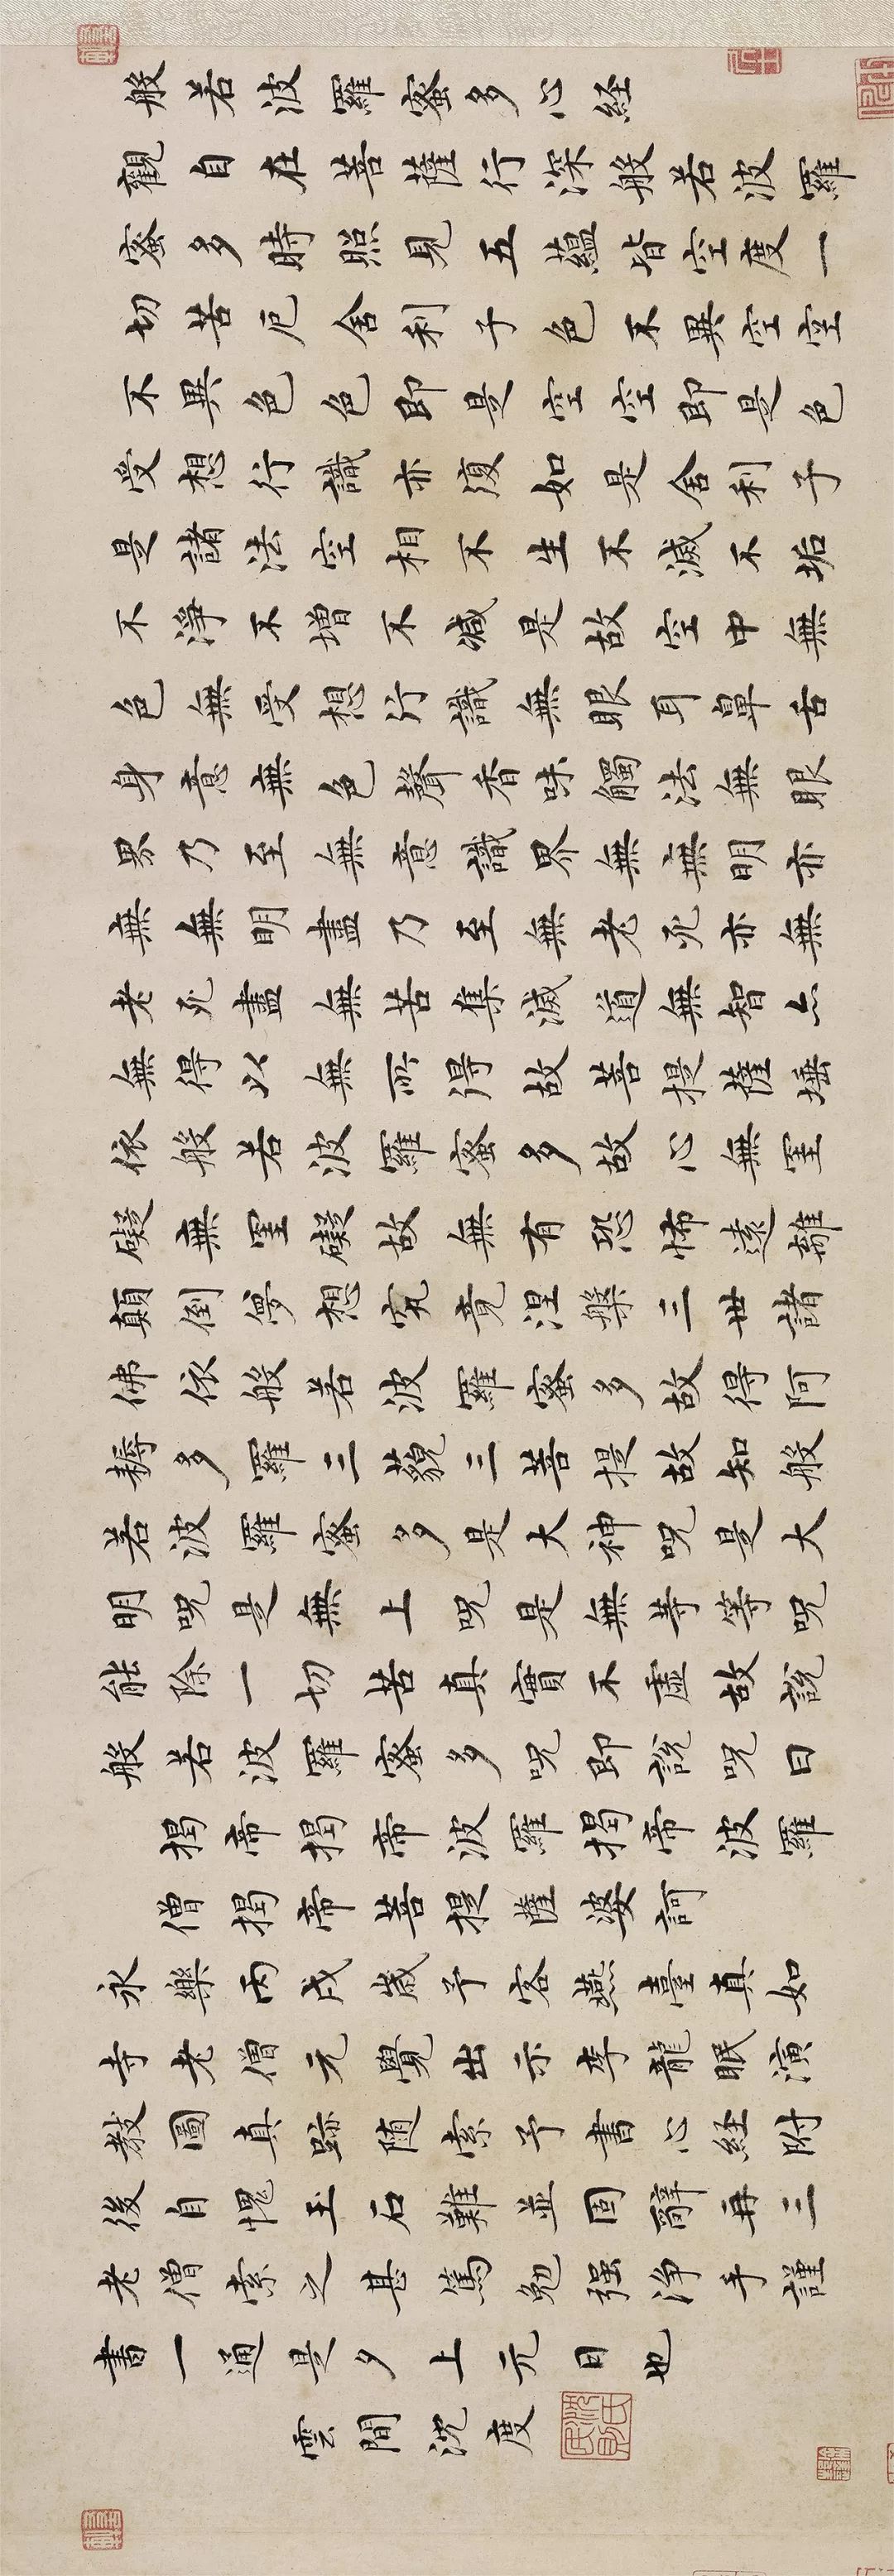 般若波羅蜜多心経
觀自在菩薩行深般若波羅
蜜多時照見五蘊皆空度一
切苦厄舍利子色不異空空
不異色色即是空空即是色
受想行識亦復如是舍利子
是諸法空相不生不滅不垢
不淨不增不減是故空中無
色無受想行識無眼耳鼻舌
身意無色聲香味觸法無眼
界乃至無意識界無無明亦
無無明盡乃至無老死亦無
老死盡無苦集滅道無智亦
無得以無所得故菩提薩埵
依般若波羅蜜多故心無罣
礙無罣礙故無有恐怖遠離
顛倒夢想究竟涅槃三世諸
佛依般若波羅蜜多故得阿
耨多羅三藐三菩提故知般
若波羅蜜多是大神咒是大
明咒是無上咒是無等等咒
能除一切苦真實不虛故說
般若波羅蜜多咒即說咒曰
揭帝揭帝波羅揭帝波羅
僧揭帝菩提薩婆訶
永樂丙戌歲予客燕臺真如
寺老僧元覺出示李龍眠演
教圖真跡随索予書心経附
後自愧玉石難並固辭再三
老僧索之甚篤勉强淨手謹
書一通是夕上元日也
雲間沈度